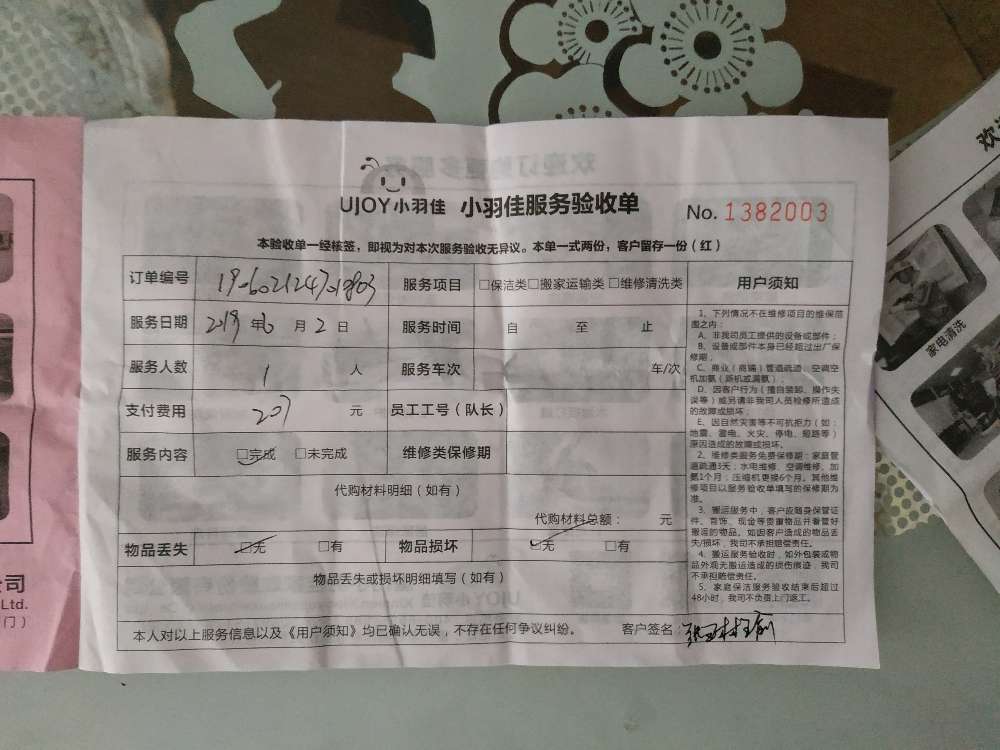 UJOY小羽佳 小羽佳服务验收单 No. 1382003
本验收单一经核签，即视为对本次服务验收无异议。本单一式两份，客户留存一份（红）
订单编号 服务项目 □保洁类□搬家运输类□维修清洗类 用户须知
服务日期 2019年6月2日 服务时间 自 至 止
服务人数 1 人 服务车次 车/次
支付费用 207 元 员工工号（队长）
服务内容 □完成 □未完成 维修类保修期
代购材料明细（如有）
代购材料总额： 元
物品丢失 □无 □有 物品损坏 □无 □有
物品丢失或损坏明细填写（如有）
本人对以上服务信息以及《用户须知》均已确认无误，不存在任何争议纠纷。 客户签名：
1、下列情况不在维修项目的维保范
围之内：
A、非我司员工提供的设备或部件；
B、设备或部件本身已经超过出厂保
修期；
C、商业（商铺）管道疏通、空调空
机加氨（拆机或漏氨）；
D、因客户行为（擅自装卸、操作失
误等）或另请非我司人员检修所造成
的故障或损坏；
E、因自然灾害等不可抗拒力（如：
地震、雷电、火灾、停电、短路等）
原因造成的故障或损坏。
2、维修类服务免费保修期：家庭管
道疏通3天；水电维修、空调维修、加
氨1个月；压缩机更换6个月。其他维
修项目以服务验收单填写的保修期为
准。
3、搬运服务中，客户应随身保管证
件、首饰、现金等贵重物品并看管好
搬运的物品。如因客户造成的物品丢
失/损坏，我司不承担赔偿责任。
4、搬运服务验收时，如外包装或物
品外观无搬运造成的损伤痕迹，我司
不承担赔偿责任。
5、家庭保洁服务验收结束后超过
48小时，我司不负责上门返工。
公司
Ltd.
门）
欢
家电清洗